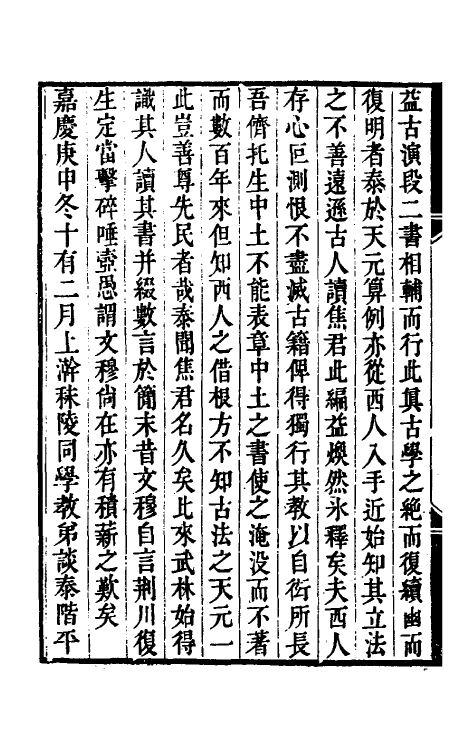 益古演段二書相輔而行此眞古學之絶而復續幽而
復明者泰於天元算例亦從西人入手近始知其立法
之不善遠遜古人讀焦君此編益煥然氷釋矣夫西人
存心叵測恨不盡滅古籍俾得獨行其教以自衒所長
吾儕托生中土不能表章中土之書使之淹没而不著
而數百年來但知西人之借根方不知古法之天元一
此豈善尊先民者哉泰聞焦君名久矣此來武林始得
識其人讀其書并綴數言於簡末昔文穆自言荆川復
生定當擊碎唾壺愚謂文穆尙在亦有積薪之歎矣
嘉慶庚申冬十有二月上澣秣陵同學教弟談泰階平